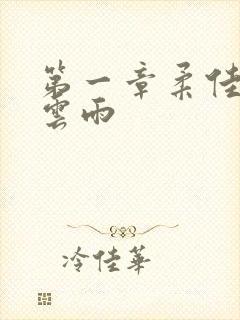 第一章柔佳
雲雨
冷佳華